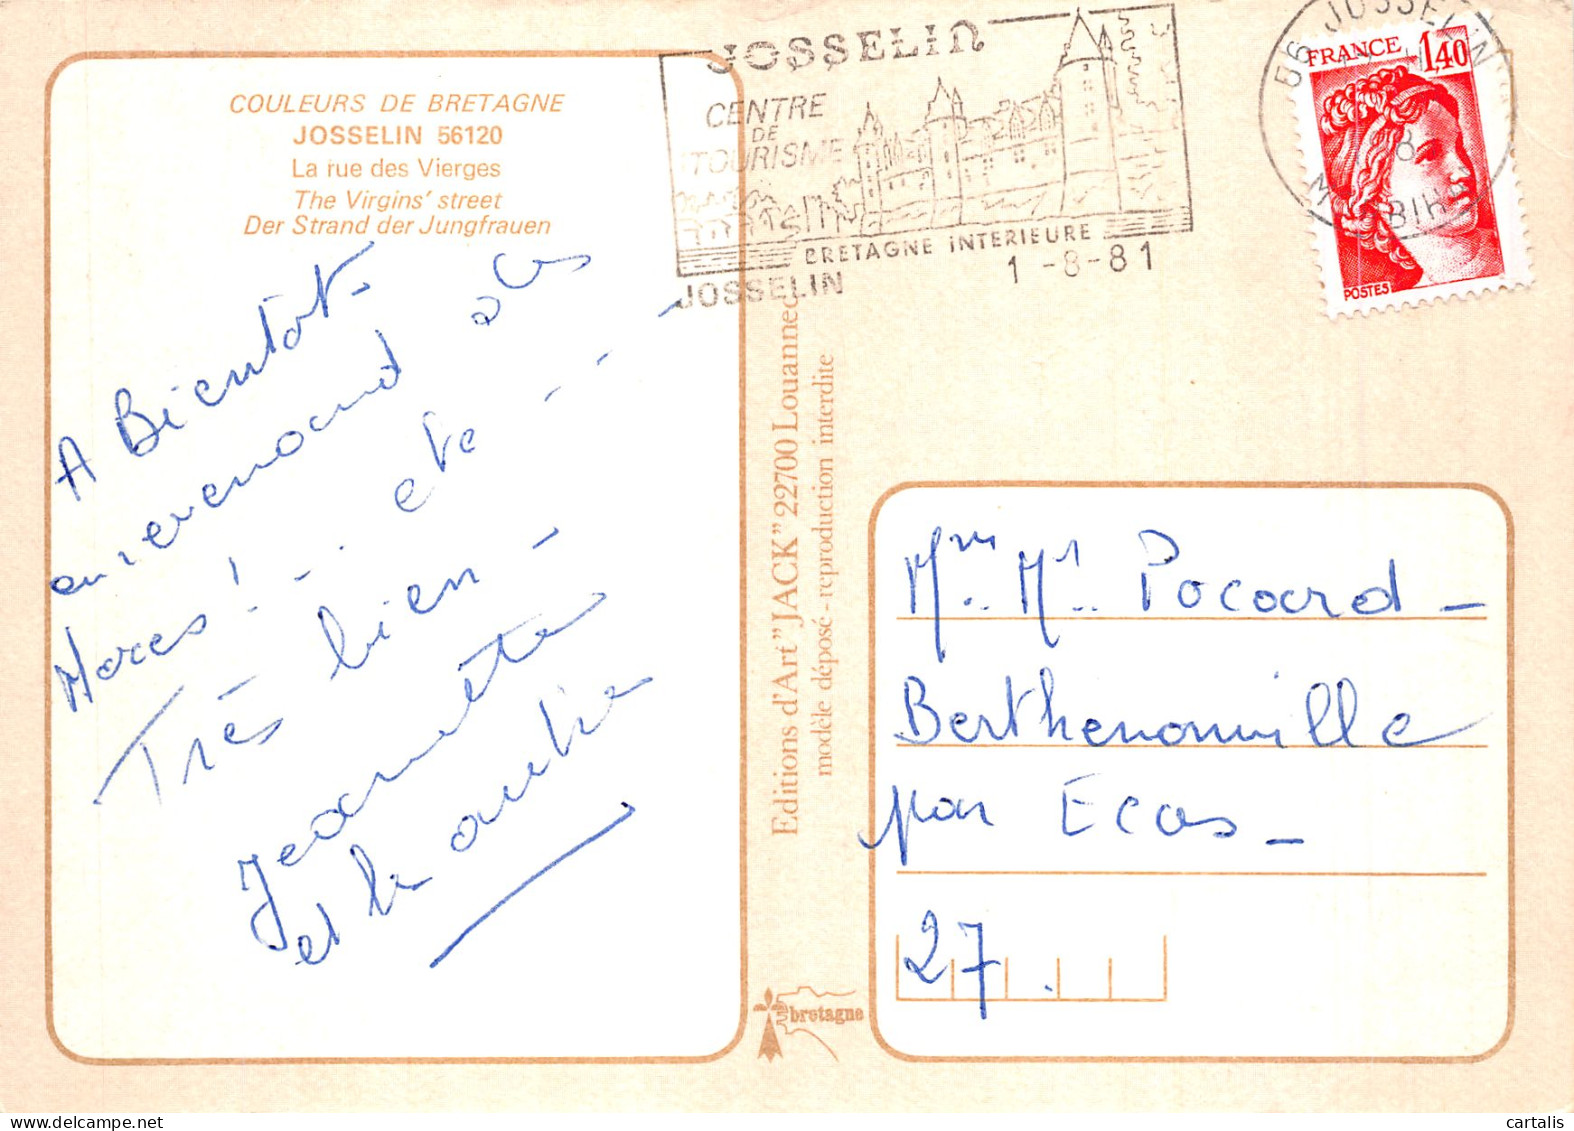 COULEURS DE BRETAGNE
JOSSELIN 56120
La rue des Vierges
The Virgins' street
Der Strand der Jungfrauen
A Bientot -
en revenant des
Mares ! - . ete - - - -
Très bien -
Jeannette
et
Editions d'Art "JACK" 22700 Louannec
modèle déposé - reproduction interdite
bretagne
JOSSELIN
CENTRE
DE
TOURISME
BRETAGNE INTERIEURE
JOSSELIN 1-8-81
56 JOSSELIN
FRANCE 1,40
POSTES
Mme. Mr. Pocard -
Berthenonville
par Ecos -
27.
cartalis